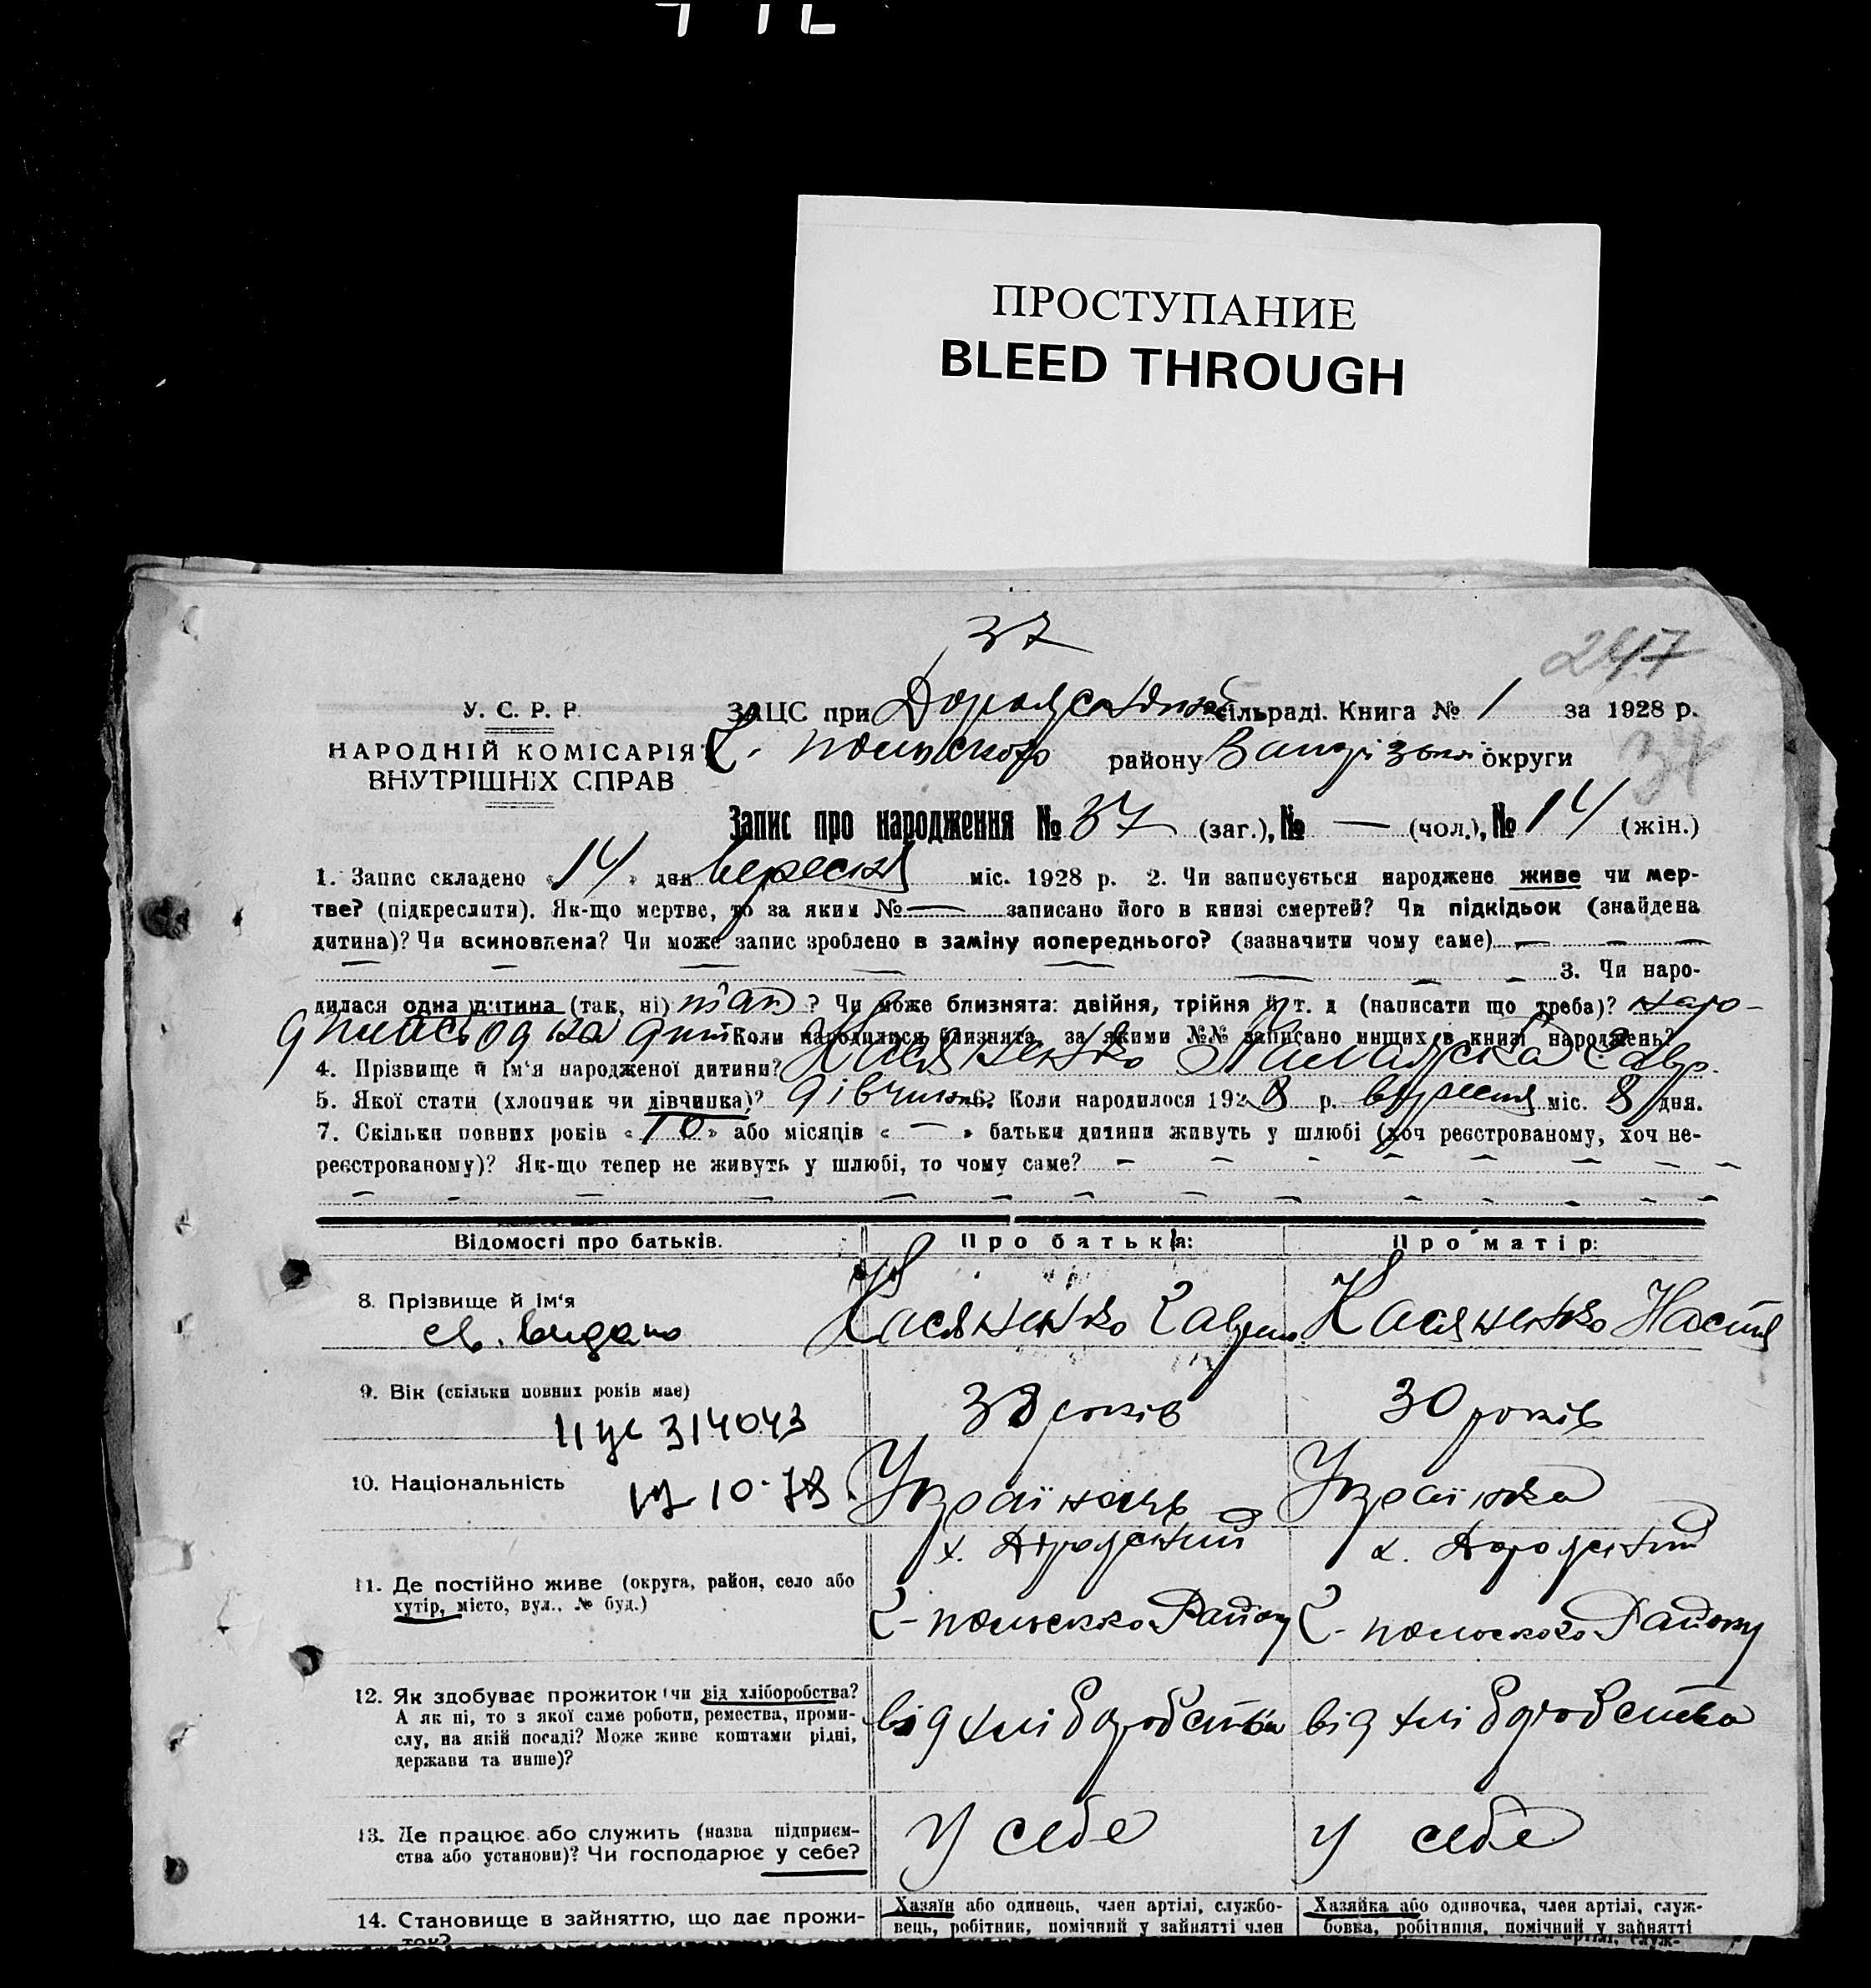 ПРОСТУПАНИЕ
BLEED THROUGH
37
247
У. С. Р. Р.
ЗАЦС при сільраді. Книга № 1 за 1928 р.
НАРОДНІЙ КОМІСАРІЯТ
ВНУТРІШНІХ СПРАВ
району округи
37
Запис про народження № 37 (заг.), № — (чол.), № 14 (жін.)
1. Запис складено «14» дня вересня міс. 1928 р. 2. Чи записується народжене живе чи мер-
тве? (підкреслити). Як-що мертве, то за яким № — записано його в книзі смертей? Чи підкідьок (знайдена
дитина)? Чи всиновлена? Чи може запис зроблено в заміну попереднього? (зазначити чому саме) — — —
— — — — — — — — 3. Чи наро-
дилася одна дитина (так, ні) так? Чи може близнята: двійня, трійня й т. д (написати що треба)? наро-
дилась одна дит Коли народилися близнята, за якими №№ записано инших в книзі народжень?
4. Прізвище й ім'я народженої дитини? Касяненко
5. Якої стати (хлопчик чи дівчинка)? дівчинка 6. Коли народилося 1928 р. вересня міс. 8 дня.
7. Скільки повних років «10» або місяців « — » батьки дитини живуть у шлюбі (хоч реєстрованому, хоч не-
реєстрованому)? Як-що тепер не живуть у шлюбі, то чому саме? — — — — — — — —
— — — — — — — — — — — —
Відомості про батьків. Про батька: Про матір:
8. Прізвище й ім'я Касяненко Касяненко Настя
св. видано
9. Вік (скільки повних років має) 38 років 30 років
314043
10. Національність Українець Українка
10-78
х. х.
11. Де постійно живе (округа, район, село або
хутір, місто, вул., № буд.) Району Району
12. Як здобуває прожиток (чи від хліборобства? від хліборобства від хліборобства
А як ні, то з якої саме роботи, ремества, проми-
слу, на якій посаді? Може живе коштами рідні,
держави та инше)?
13. Де працює або служить (назва підприєм- у себе у себе
ства або установи)? Чи господарює у себе?
14. Становище в зайняттю, що дає прожи- Хазяїн або одинець, член артілі, службо- Хазяйка або одиночка, член артілі, служ-
ток? вець, робітник, помічний у зайнятті член бовка, робітниця, помічний у зайнятті